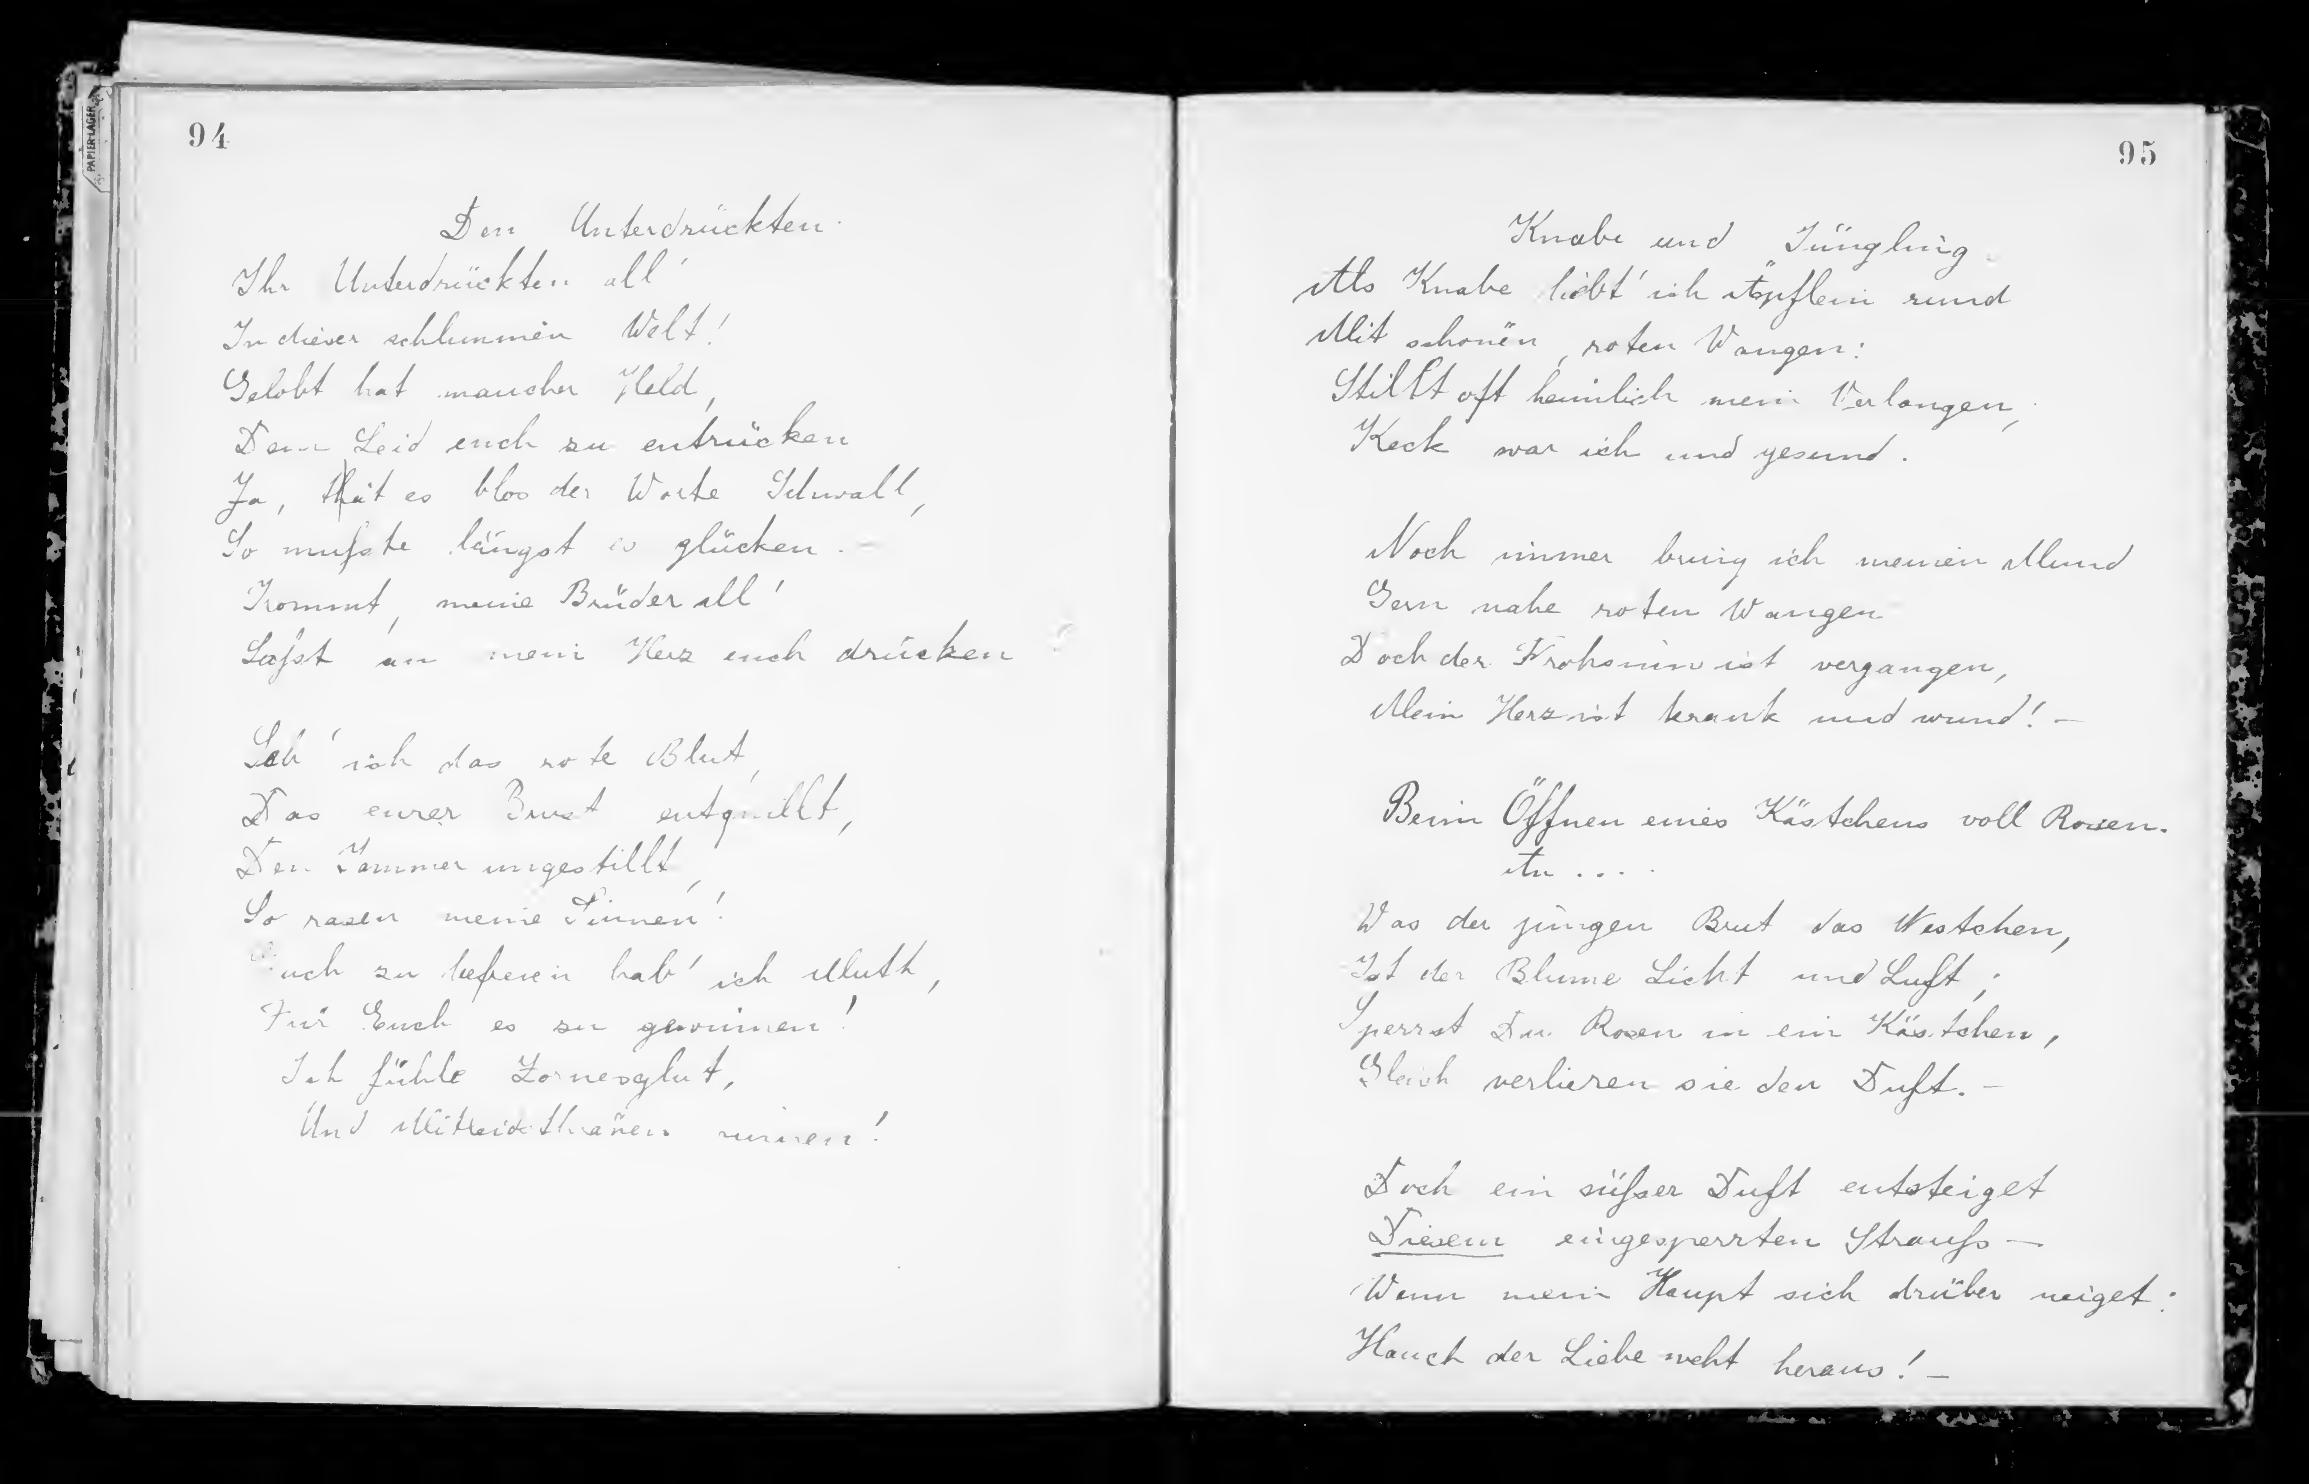 PAPIER-LAGER
94
Den Unterdrückten.
Ihr Unterdrückten all'
In dieser schlimmen Welt!
Gelobt hat mancher Held,
Dem Leid euch zu entrücken
Ja, thät es blos der Worte Schwall,
So müsste längst es glücken. —
Kommt, meine Brüder all'
Lasst an mein Herz euch drücken
Seh' ich das rote Blut,
Das eurer Brust entquillt,
Den Jammer ungestillt,
So rasen meine Sinnen!
Euch zu bessern hab' ich Muth,
Für Euch es zu gewinnen!
Ich fühle Zornesglut,
Und Mitleidsthränen rinnen!
95
Knabe und Jüngling.
Als Knabe liebt' ich Äpflein rund
Mit schönen, roten Wangen:
Stillt oft heimlich mein Verlangen,
Keck war ich und gesund.
Noch immer bring ich meinen Mund
Gern nahe roten Wangen
Doch der Frohsinn ist vergangen,
Mein Herz ist krank und wund! —
Beim Öffnen eines Kästchens voll Rosen.
An ....
Was der jungen Brut das Nestchen,
Ist der Blume Licht und Luft;
Sperrst Du Rosen in ein Kästchen,
Gleich verlieren sie den Duft. —
Doch ein süsser Duft entsteiget
Diesem eingesperrten Strauss —
Wenn mein Haupt sich drüber neiget:
Hauch der Liebe weht heraus! —